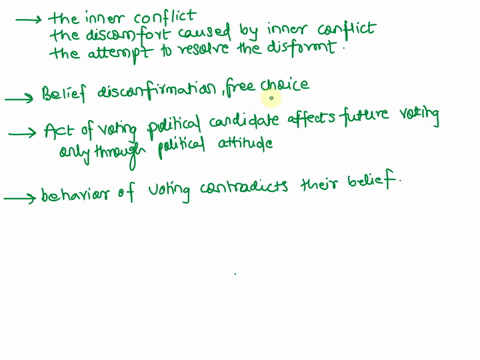 → the inner conflict
the discomfort caused by inner conflict
the attempt to resolve the disformt.
→ Belief disconfirmation, free choice
→ Act of voting political candidate affects future voting
only through political attitude
→ behavior of voting contradicts their belief.